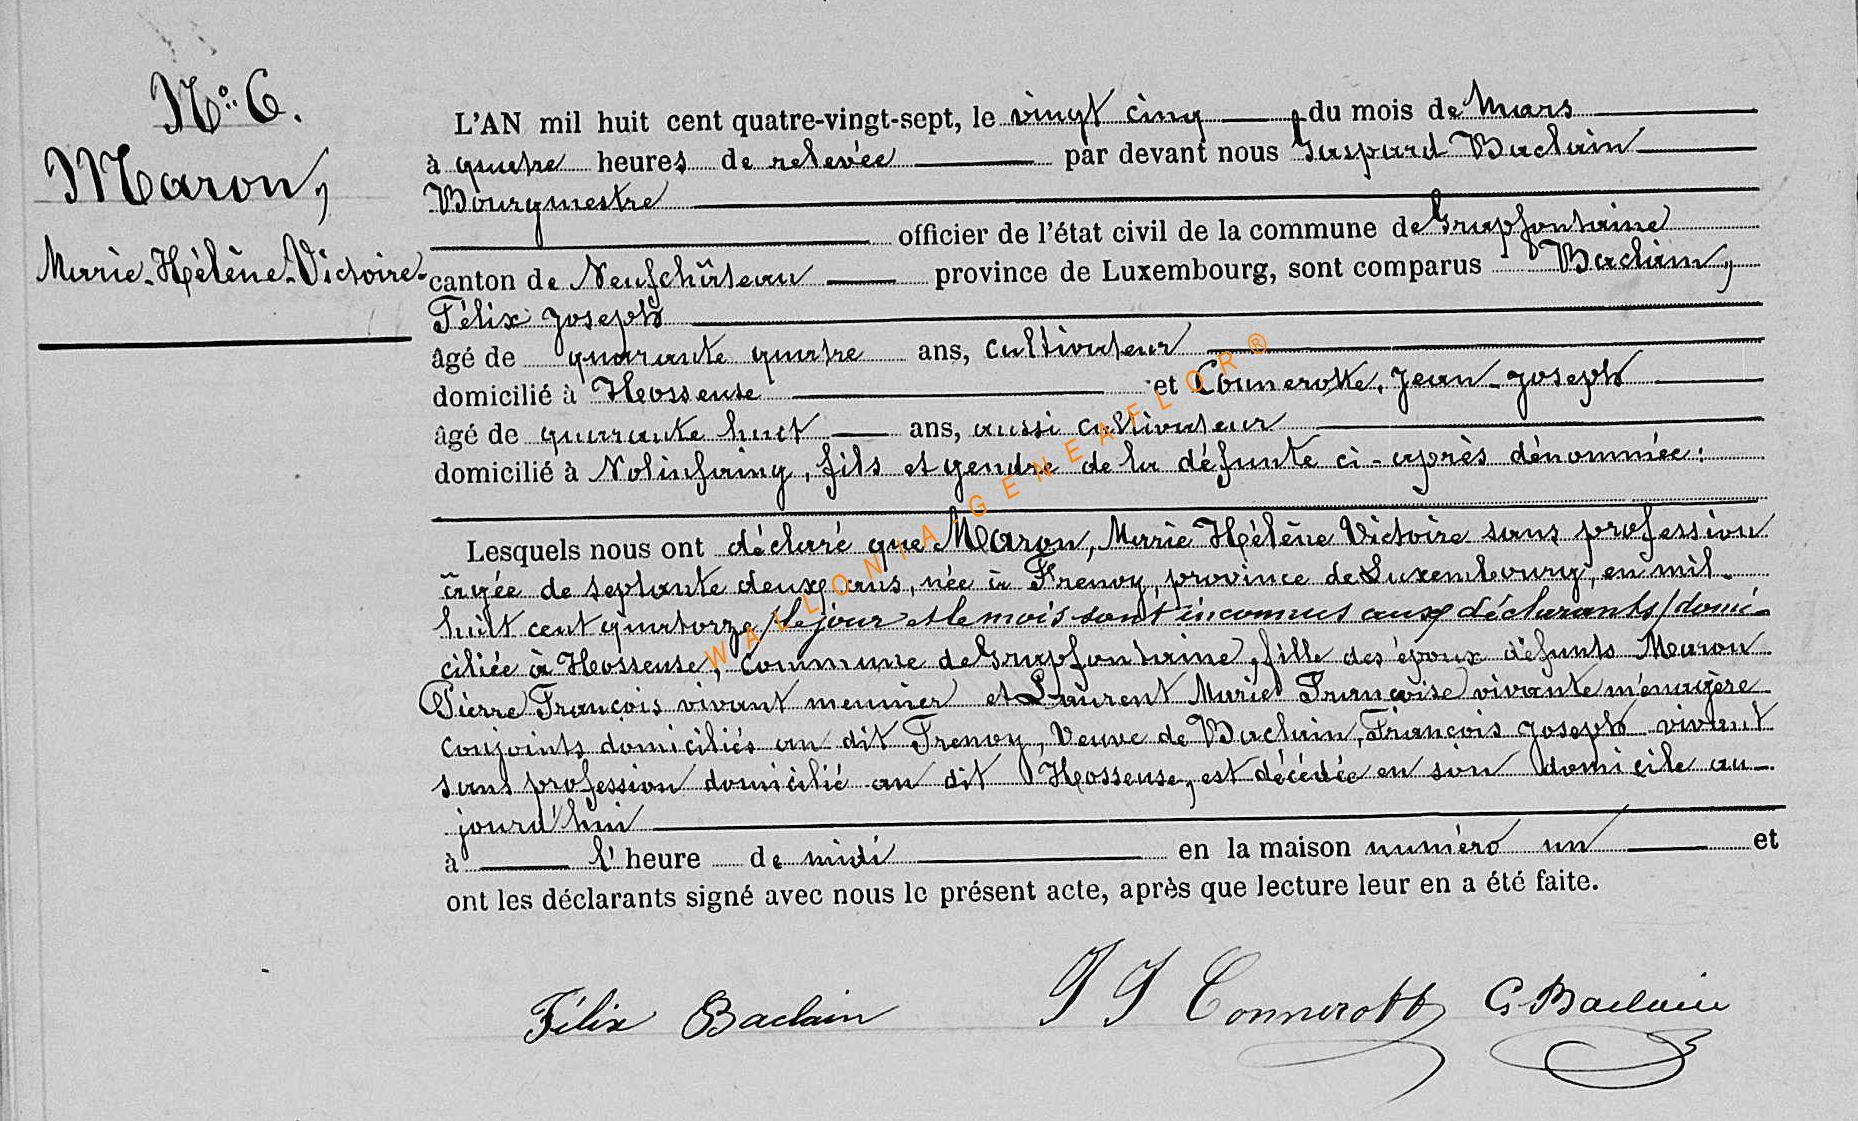 N° 6.
Maron,
Marie-Hélène-Victoire.
L'AN mil huit cent quatre-vingt-sept, le vingt cinq du mois de Mars
à quatre heures de relevée par devant nous Gaspard Baclain
Bourgmestre
officier de l'état civil de la commune de Grapfontaine
canton de Neufchâteau province de Luxembourg, sont comparus Baclain,
Félix Joseph
âgé de quarante quatre ans, cultivateur
domicilié à Hosseuse et Connerotte, Jean-Joseph
âgé de quarante huit ans, aussi cultivateur
domicilié à Nolinfaing, fils et gendre de la défunte ci-après dénommée:
Lesquels nous ont déclaré que Maron, Marie Hélène Victoire sans profession
âgée de septante deux ans, née à Frenoy, province de Luxembourg, en mil
huit cent quatorze /le jour et le mois sont inconnus aux déclarants/ domi-
ciliée à Hosseuse, commune de Grapfontaine, fille des époux défunts Maron
Pierre François vivant meunier et Laurent Marie Françoise vivante ménagère
conjoints domiciliés au dit Frenoy, Veuve de Baclain, François Joseph vivant
sans profession domicilié au dit Hosseuse, est décédée en son domicile au-
jourd'hui
à l'heure de midi en la maison numéro un et
ont les déclarants signé avec nous le présent acte, après que lecture leur en a été faite.
Félix Baclain J J Connerotte G Baclain
WALLONIA-GENEAFLOR®